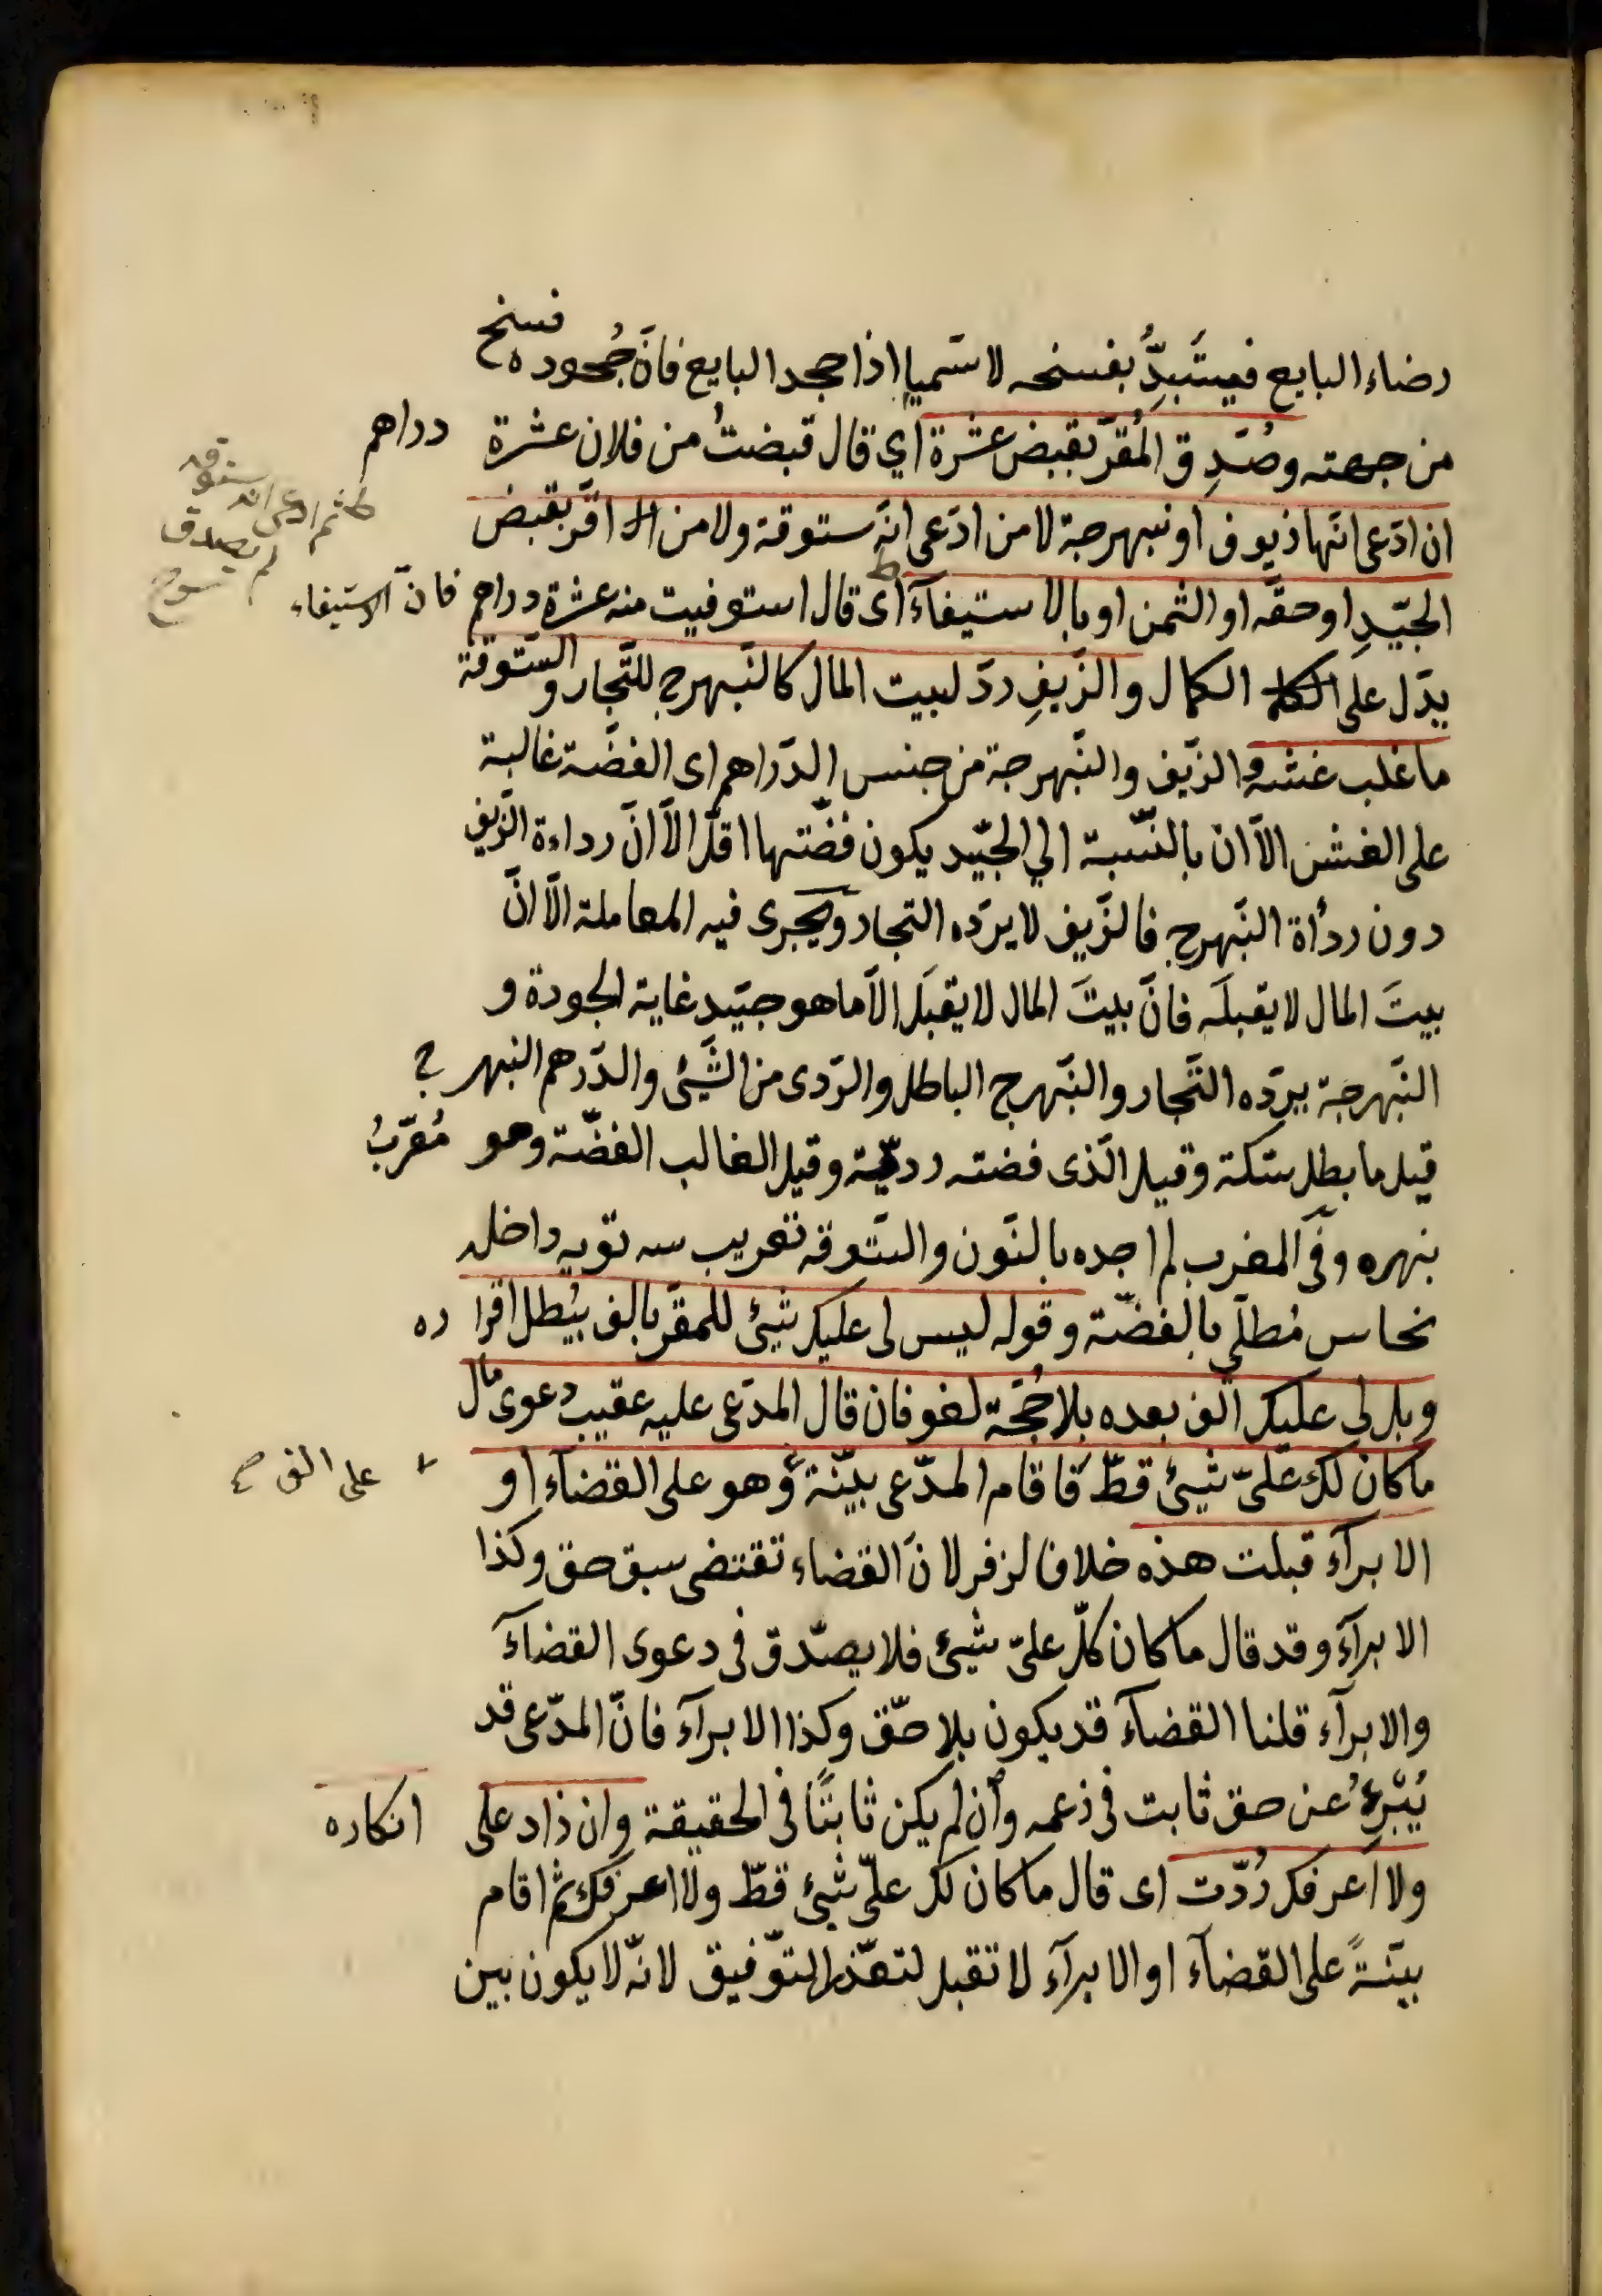 رضاء البايع فيستَبِدُّ بفسخه لا سيّما اذا جحد البايع فانّ جُحوده فسخ
من جهته وصُدِّق المُقرّ بقبض عشرة اي قال قبضتُ من فلان عشرة دراهم
ان ادّعى انّها زيوف او نبهرجة لا من ادّعى انّه ستوقة ولا من اقرّ بقبض
الجيّدِ او حقّه او الثمن او بالاستيفآء اى قال استوفيت منه عشرة دراهم فانّ الاستيفاء
يدّل على الكمال والزّيف ردّ لبيت المال كالنّبهرج للتّجار والسّتّوقة
ما غلب غشه والزّيف والنّبهرجة من جنس الدّراهم اى الفضّة غالبة
على الغش الّا ان بالنّسبة الي الجيّد يكون فضّتها اقلّ الّا انّ رداءة الزّيف
دون ردأة النّبهرج فالزّيف لا يردّه التجار ويجرى فيه المعاملة الّا انّ
بيتَ المال لا يقبله فانّ بيتَ المال لا يقبل الّا ما هو جيّد غاية الجودة و
النّبهرجة يردّه التّجار والنّبهرج الباطل والرّدى من الشّيئ والدّرهم النبهرج
قيل ما بطل سكّته وقيل الّذى فضته رديّة وقيل الغالب الفضّة وهو مُعرّبُ
نبهره وفى المغرب لم اجده بالنّون والستّوقه تعريب سه تويه داخله
نحاس مُطلّى بالفضّة وقوله ليس لى عليك شيئ للمقرّ بالف يُبطل اقراره
وبل لي عليك الف بعده بلا حُجّة لغو فان قال المدّعى عليه عقيب دعوى مال
ما كان لك علىّ شيئ قطّ فاقام المدّعى بيّنة على الف صح وهو على القضآء او
الابرآء قبلت هذه خلافا لزفر لانّ القضاء تقتضى سبق حق وكذا
الابرآء وقد قال ما كان كلّ علىّ شيئ فلا يصدّق فى دعوى القضآء
والابرآء قلنا القضآء قد يكون بلا حقّ وكذا الابرآء فانّ المدّعى قد
يُبْرِئُ عن حق ثابت فى زعمه وان لم يكن ثابتًا فى الحقيقة وان زاد على انكاره
ولا اعرفك رُدّت اى قال ما كان لك علىّ شيئ قطّ ولا اعرفك ثم اقام
بيّنةً على القضآء او الابرآء لا تقبل لتعذّر التوّفيق لانّه لا يكون بين
ثم ادعى انه
ستوقه
لم يصدق